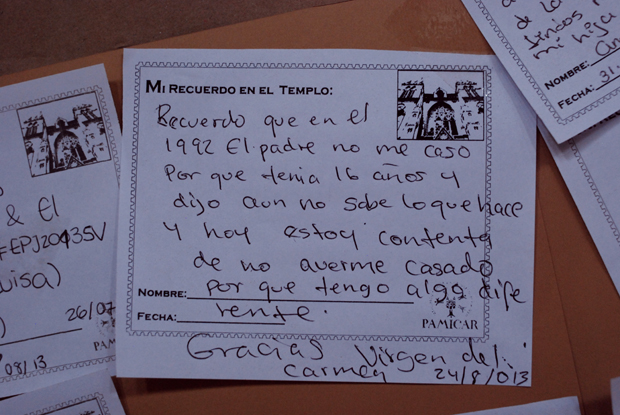 MI RECUERDO EN EL TEMPLO:
Recuerdo que en el
1992 El padre no me caso
Por que tenia 16 años y
dijo aun no sabe lo que hace
y hoy estoy contenta
de no averme casado
NOMBRE: por que tengo algo dife
FECHA: rente.
PAMICAR
Gracias Virgen del
Carmen 24/8/013
& El
FEPJ20435V
uisa)
26/07
08/13
PAM
de la
mi hija
NOMBRE:
FECHA: 31.